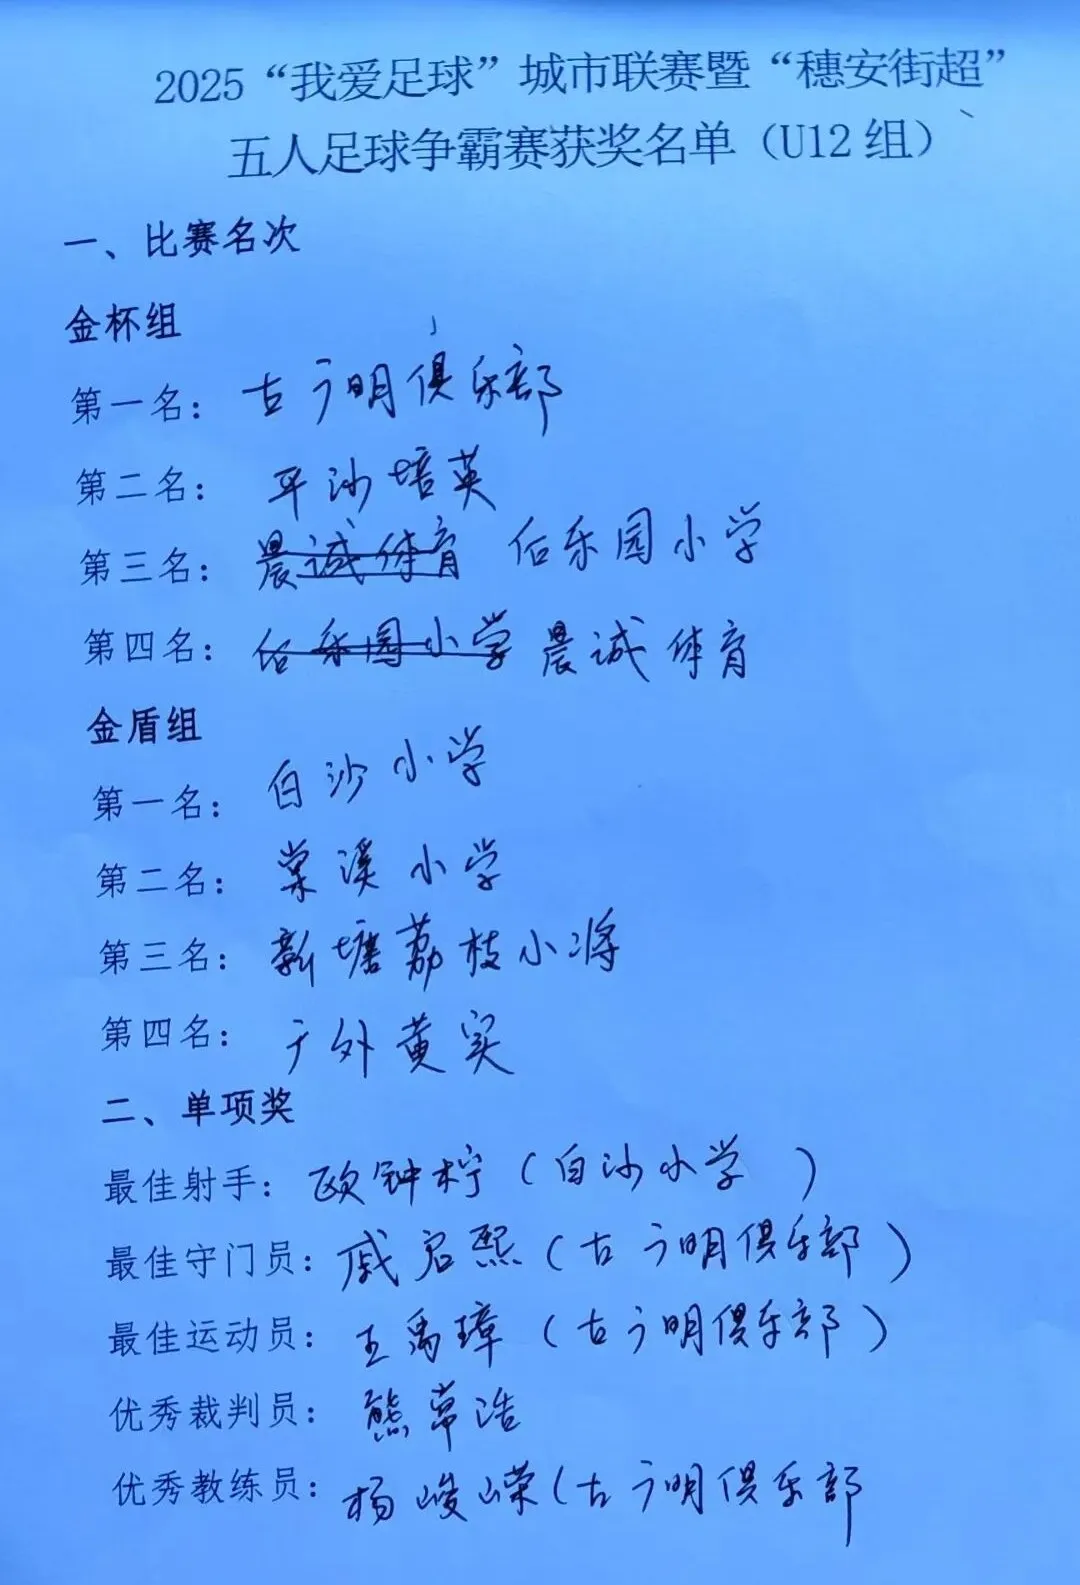 2025“我爱足球”城市联赛暨“穗安街超”
五人足球争霸赛获奖名单（U12组）
一、比赛名次
金杯组
第一名：古广明俱乐部
第二名：平沙培英
第三名：晨诚体育 佰乐园小学
第四名：佰乐园小学 晨诚体育
金盾组
第一名：白沙小学
第二名：棠溪小学
第三名：新塘荔枝小将
第四名：广外黄实
二、单项奖
最佳射手：欧钟柠（白沙小学）
最佳守门员：戚启熙（古广明俱乐部）
最佳运动员：王禹璋（古广明俱乐部）
优秀裁判员：熊常浩
优秀教练员：杨峻嵘（古广明俱乐部